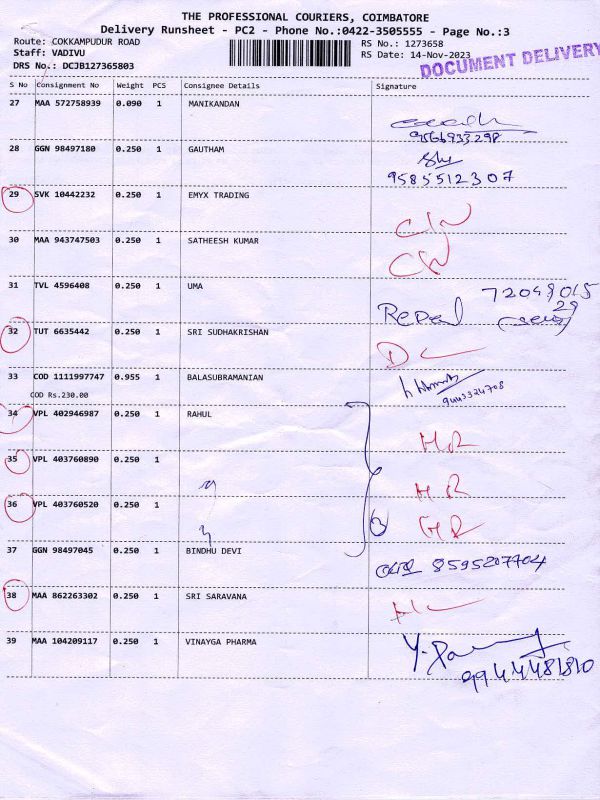 THE PROFESSIONAL COURIERS, COIMBATORE
Delivery Runsheet - PC2 - Phone No.:0422-3505555 - Page No.:3
Route: COKKAMPUDUR ROAD
RS No.: 1273658
Staff: VADIVU
RS Date: 14-Nov-2023
DRS No.: DCJB127365803
DOCUMENT DELIVERY
S No Consignment No Weight PCS Consignee Details Signature
27 MAA 572758939 0.090 1 MANIKANDAN
9566933298
28 GGN 98497180 0.250 1 GAUTHAM
9585512307
29 SVK 10442232 0.250 1 EMYX TRADING
30 MAA 943747503 0.250 1 SATHEESH KUMAR
31 TVL 4596408 0.250 1 UMA
32 TUT 6635442 0.250 1 SRI SUDHAKRISHAN
33 COD 1111997747 0.955 1 BALASUBRAMANIAN
COD Rs.230.00
9443324708
34 VPL 402946987 0.250 1 RAHUL
35 VPL 403760890 0.250 1
36 VPL 403760520 0.250 1
37 GGN 98497045 0.250 1 BINDHU DEVI
8595207704
38 MAA 862263302 0.250 1 SRI SARAVANA
39 MAA 104209117 0.250 1 VINAYGA PHARMA
9944481810